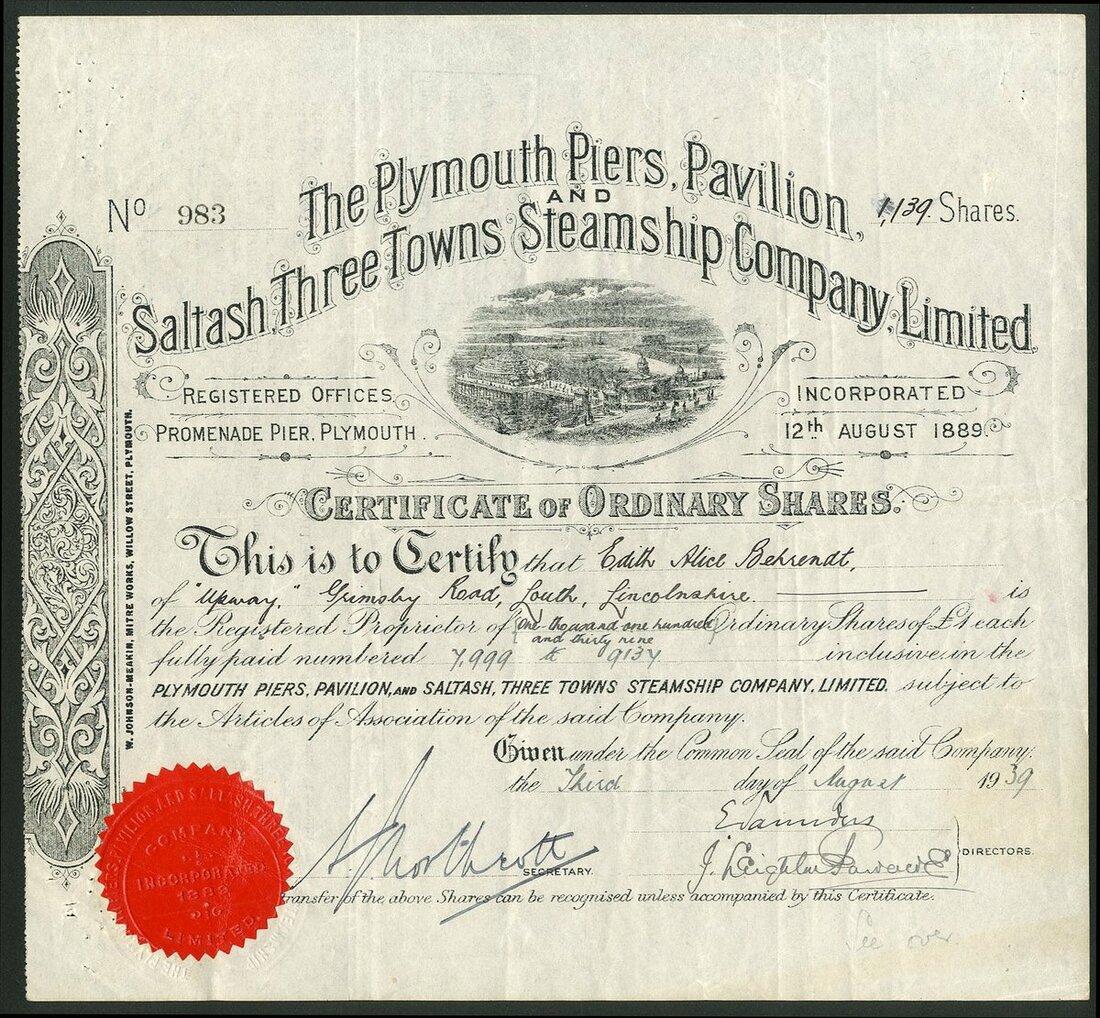 The Plymouth Piers, Pavilion,
AND
Saltash, Three Towns Steamship Company, Limited.
No 983
1,139. Shares.
REGISTERED OFFICES,
PROMENADE PIER, PLYMOUTH.
INCORPORATED
12th AUGUST 1889.
CERTIFICATE OF ORDINARY SHARES.
This is to Certify that Edith Alice Behrendt,
of "Upway," Grimsby Road, Louth, Lincolnshire. is
the Registered Proprietor of (One thousand one hundred and thirty nine) Ordinary Shares of £1 each
fully paid numbered 7,999 to 9137 inclusive in the
PLYMOUTH PIERS, PAVILION, AND SALTASH, THREE TOWNS STEAMSHIP COMPANY, LIMITED. subject to
the Articles of Association of the said Company.
Given under the Common Seal of the said Company;
the Third day of August 1939
E Saunders
DIRECTORS.
SECRETARY.
transfer of the above Shares can be recognised unless accompanied by this Certificate.
See over
W. JOHNSON-MEAKIN, MITRE WORKS, WILLOW STREET, PLYMOUTH.
PAVILION AND SALTASH, THREE
COMPANY
INCORPORATED
1889
LIMITED